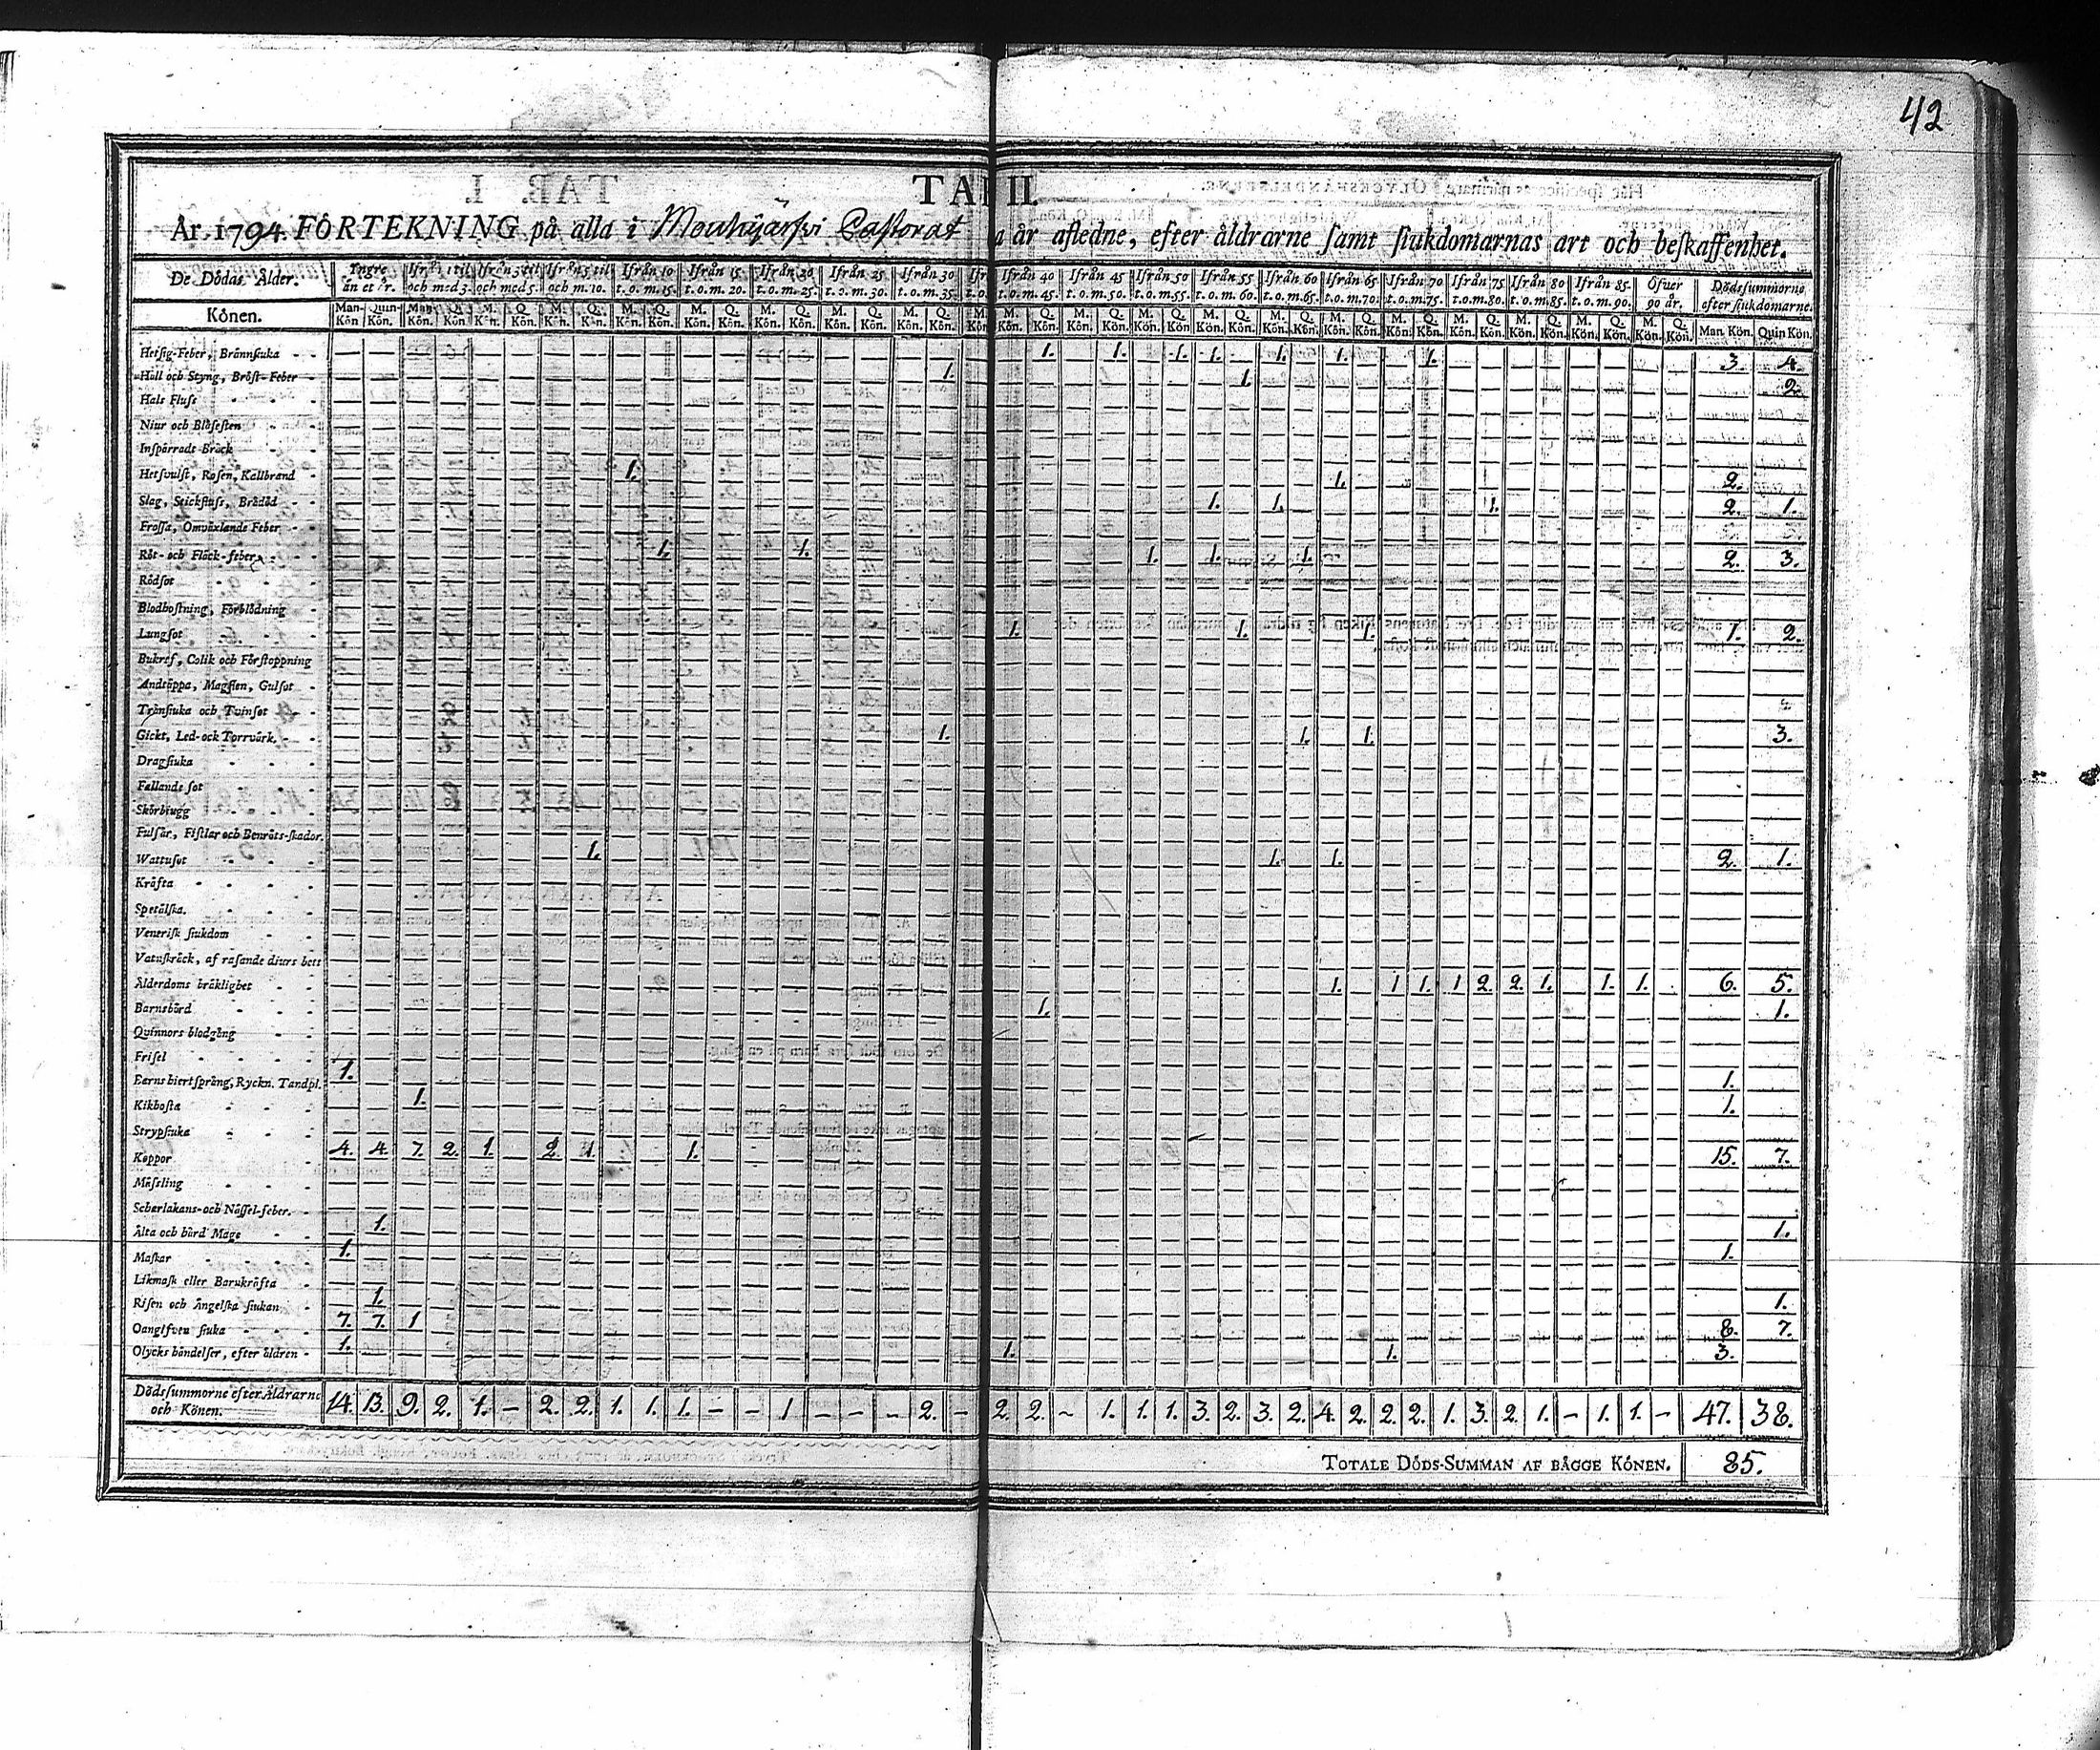 42
TAB II.
År. 1794. FÖRTEKNING på alla i Mouhijärfvi Pastorat a år afledne, efter åldrarne samt siukdomarnas art och beskaffenhet.
De Dödas Ålder. Yngre än et år. Ifrån 1 til och med 3. Ifrån 3 til och med 5. Ifrån 5 til och m. 10. Ifrån 10 t. o. m. 15. Ifrån 15 t. o. m. 20. Ifrån 20 t. o. m. 25. Ifrån 25 t. o. m. 30. Ifrån 30 t. o. m. 35. Ifrån 40 t. o. m. 45. Ifrån 45 t. o. m. 50. Ifrån 50 t. o. m. 55. Ifrån 55 t. o. m. 60. Ifrån 60 t. o. m. 65. Ifrån 65 t. o. m. 70. Ifrån 70 t. o. m. 75. Ifrån 75 t. o. m. 80. Ifrån 80 t. o. m. 85. Ifrån 85 t. o. m. 90. Öfver 90 år. Dödssummorne efter siukdomarne.
Könen. Man-Kön Quin-Kön. Man Kön Q. Kön M. Kön. Q. Kön. M. Kön. Q. Kön. M. Kön. Q. Kön. M. Kön. Q. Kön. M. Kön. Q. Kön. M. Kön. Q. Kön. M. Kön. Q. Kön. M. Kön. Q. Kön. M. Kön. Q. Kön. M. Kön. Q. Kön. M. Kön. Q. Kön. M. Kön. Q. Kön. M. Kön. Q. Kön. M. Kön. Q. Kön. M. Kön. Q. Kön. M. Kön. Q. Kön. M. Kön. Q. Kön. M. Kön. Q. Kön. Man. Kön. Quin Kön.
Hetsig-Feber, Brännsiuka - - 1. 1. 1. 1. 1. 1. 1. 3. 4.
Håll och Styng, Bröst-Feber - 1. 1. 2.
Hals Fluss - - -
Niur och Blåsesten - -
Inspärradt Bråck - -
Hetsvulst, Rosen, Kallbrand - 1. 1. 2.
Slag, Stickfluss, Brådöd - - 1. 1. 1. 2. 1.
Frossa, Omväxlande Feber - -
Röt- och Fläck-feber - - 1. 1. 1. 1. 1. 2. 3.
Rödsot - - -
Blodhostning, Förblödning -
Lungsot - - - 1. 1. 1. 1. 2.
Bukref, Colik och Förstoppning
Andtäppa, Magsien, Gulsot -
Trånsiuka och Tvinsot -
Gickt, Led- och Torrvärk. - - 1. 1. 1. 3.
Dragsiuka - - -
Fallande sot - -
Skörbiugg - - -
Fulsår, Fistlar och Benröts-skador.
Wattusot - - - 1. 1. 1. 2. 1.
Kräfta - - - -
Spetälska. - - -
Venerisk siukdom - -
Vatuskräck, af rasande diurs bett
Ålderdoms bräklighet - - 1. 1 1. 1 2. 2. 1. 1. 1. 6. 5.
Barnsbörd - - - 1. 1.
Quinnors blodgång - -
Frisel - - - -
Barns hiertsprång, Ryckn. Tandpl. 1. 1.
Kikhosta - - - 1. 1.
Strypsiuka - - -
Koppor - 4. 4. 7. 2. 1. 2. 1. 1. 15. 7.
Mässling - - -
Scharlakans- och Nässel-feber. -
Älta och hård Mage - - 1. 1.
Maskar - - - 1. 1.
Likmask eller Barnkräfta -
Risen och Ängelska siukan - 1. 1.
Oangifven siuka - - - 7. 7. 1 8. 7.
Olycks händelser, efter åldren - 1. 1. 1. 3.
Dödssummorne efter Åldrarne och Könen. 14. 13. 9. 2. 1. - 2. 2. 1. 1. 1. - - 1 - - - 2. - 2. 2. - 1. 1. 1. 3. 2. 3. 2. 4. 2. 2. 2. 1. 3. 2. 1. - 1. 1. - 47. 38.
TOTALE DÖDS-SUMMAN AF BÄGGE KÖNEN. 85.